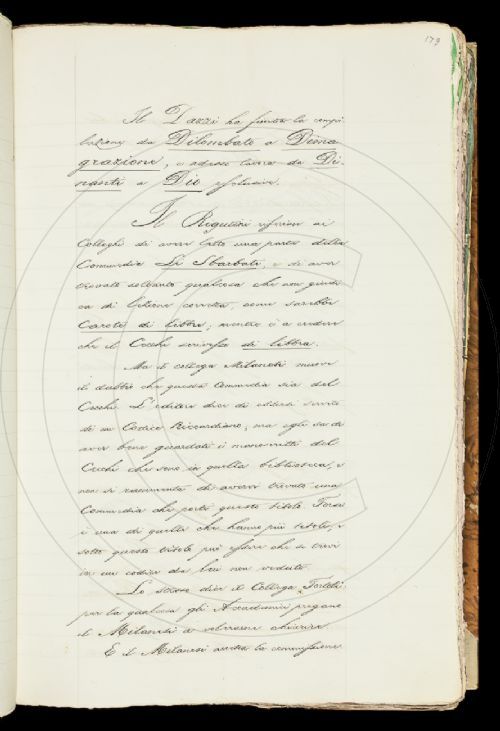 179
Il Dazzi ha finito la compi-
lazione da Dilombato a Dima-
grazione, e adesso lavora da Di-
nanti a Dio esclusive.
Il Rigutini riferisce ai
Colleghi di aver letto una parte della
Commedia Li Sbarbati, e di aver
trovato soltanto qualcosa che non giudi-
ca di lezione corretta, come sarebbe
Carote di libbre, mentre è a credere
che il Cecchi scrivesse di libbra.
Ma il collega Milanesi muove
il dubbio che questa Commedia sia del
Cecchi. L'editore dice di essersi servito
di un Codice Riccardiano, ma egli sa di
aver bene guardati i manoscritti del
Cecchi che sono in quella biblioteca, e
non si rammenta di avervi trovata una
Commedia che porti questo titolo. Forse
è una di quelle che hanno più titoli, e
sotto questo titolo può essere che si trovi
in un codice da lui non veduto.
Lo stesso dice il Collega Tortoli:
per la qual cosa gli Accademici pregano
il Milanesi a volersene chiarire.
E il Milanesi accetta la commissione